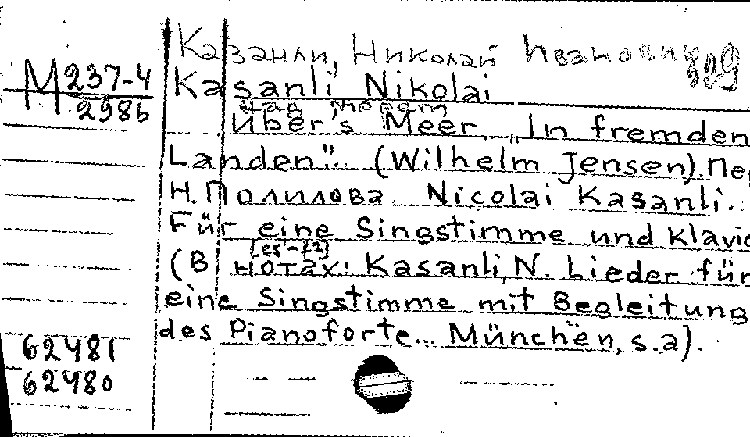 Казанли, Николай Иванович
809
М 237-4
2986
Kasanli Nikolai
Über's Meer. „In fremden
Landen". (Wilhelm Jensen). Пер
Н. Полилова. Nicolai Kasanli.
Für eine Singstimme und Klavie
[es-f2]
(В нотах: Kasanli, N. Lieder für
eine Singstimme mit Begleitung
des Pianoforte... München, s.a).
62481
62480